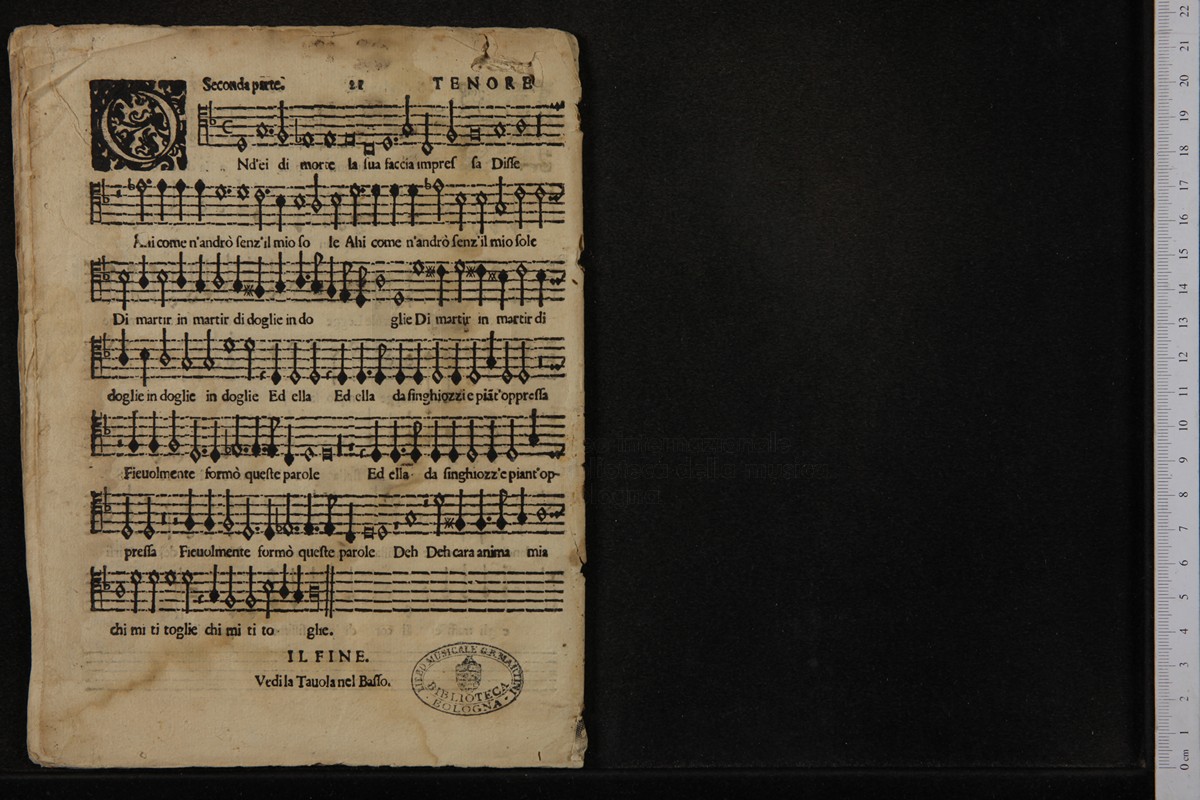 Seconda parte. 21 TENORE
O Nd'ei di morte la sua faccia impres sa Disse
Ahi come n'andrò senz'il mio so le Ahi come n'andrò senz'il mio sole
Di martir in martir di doglie in do glie Di martir in martir di
doglie in doglie in doglie Ed ella Ed ella da singhiozzi e piãt'oppressa
Fieuolmente formò queste parole Ed ella da singhiozz'e piant'op-
pressa Fieuolmente formò queste parole Deh Deh cara anima mia
chi mi ti toglie chi mi ti to glie.
IL FINE.
Vedi la Tauola nel Basso.
LICEO MUSICALE G.B. MARTINI
BIBLIOTECA
BOLOGNA
22
21
20
19
18
17
16
15
14
13
12
11
10
9
8
7
6
5
4
3
2
1
0 cm